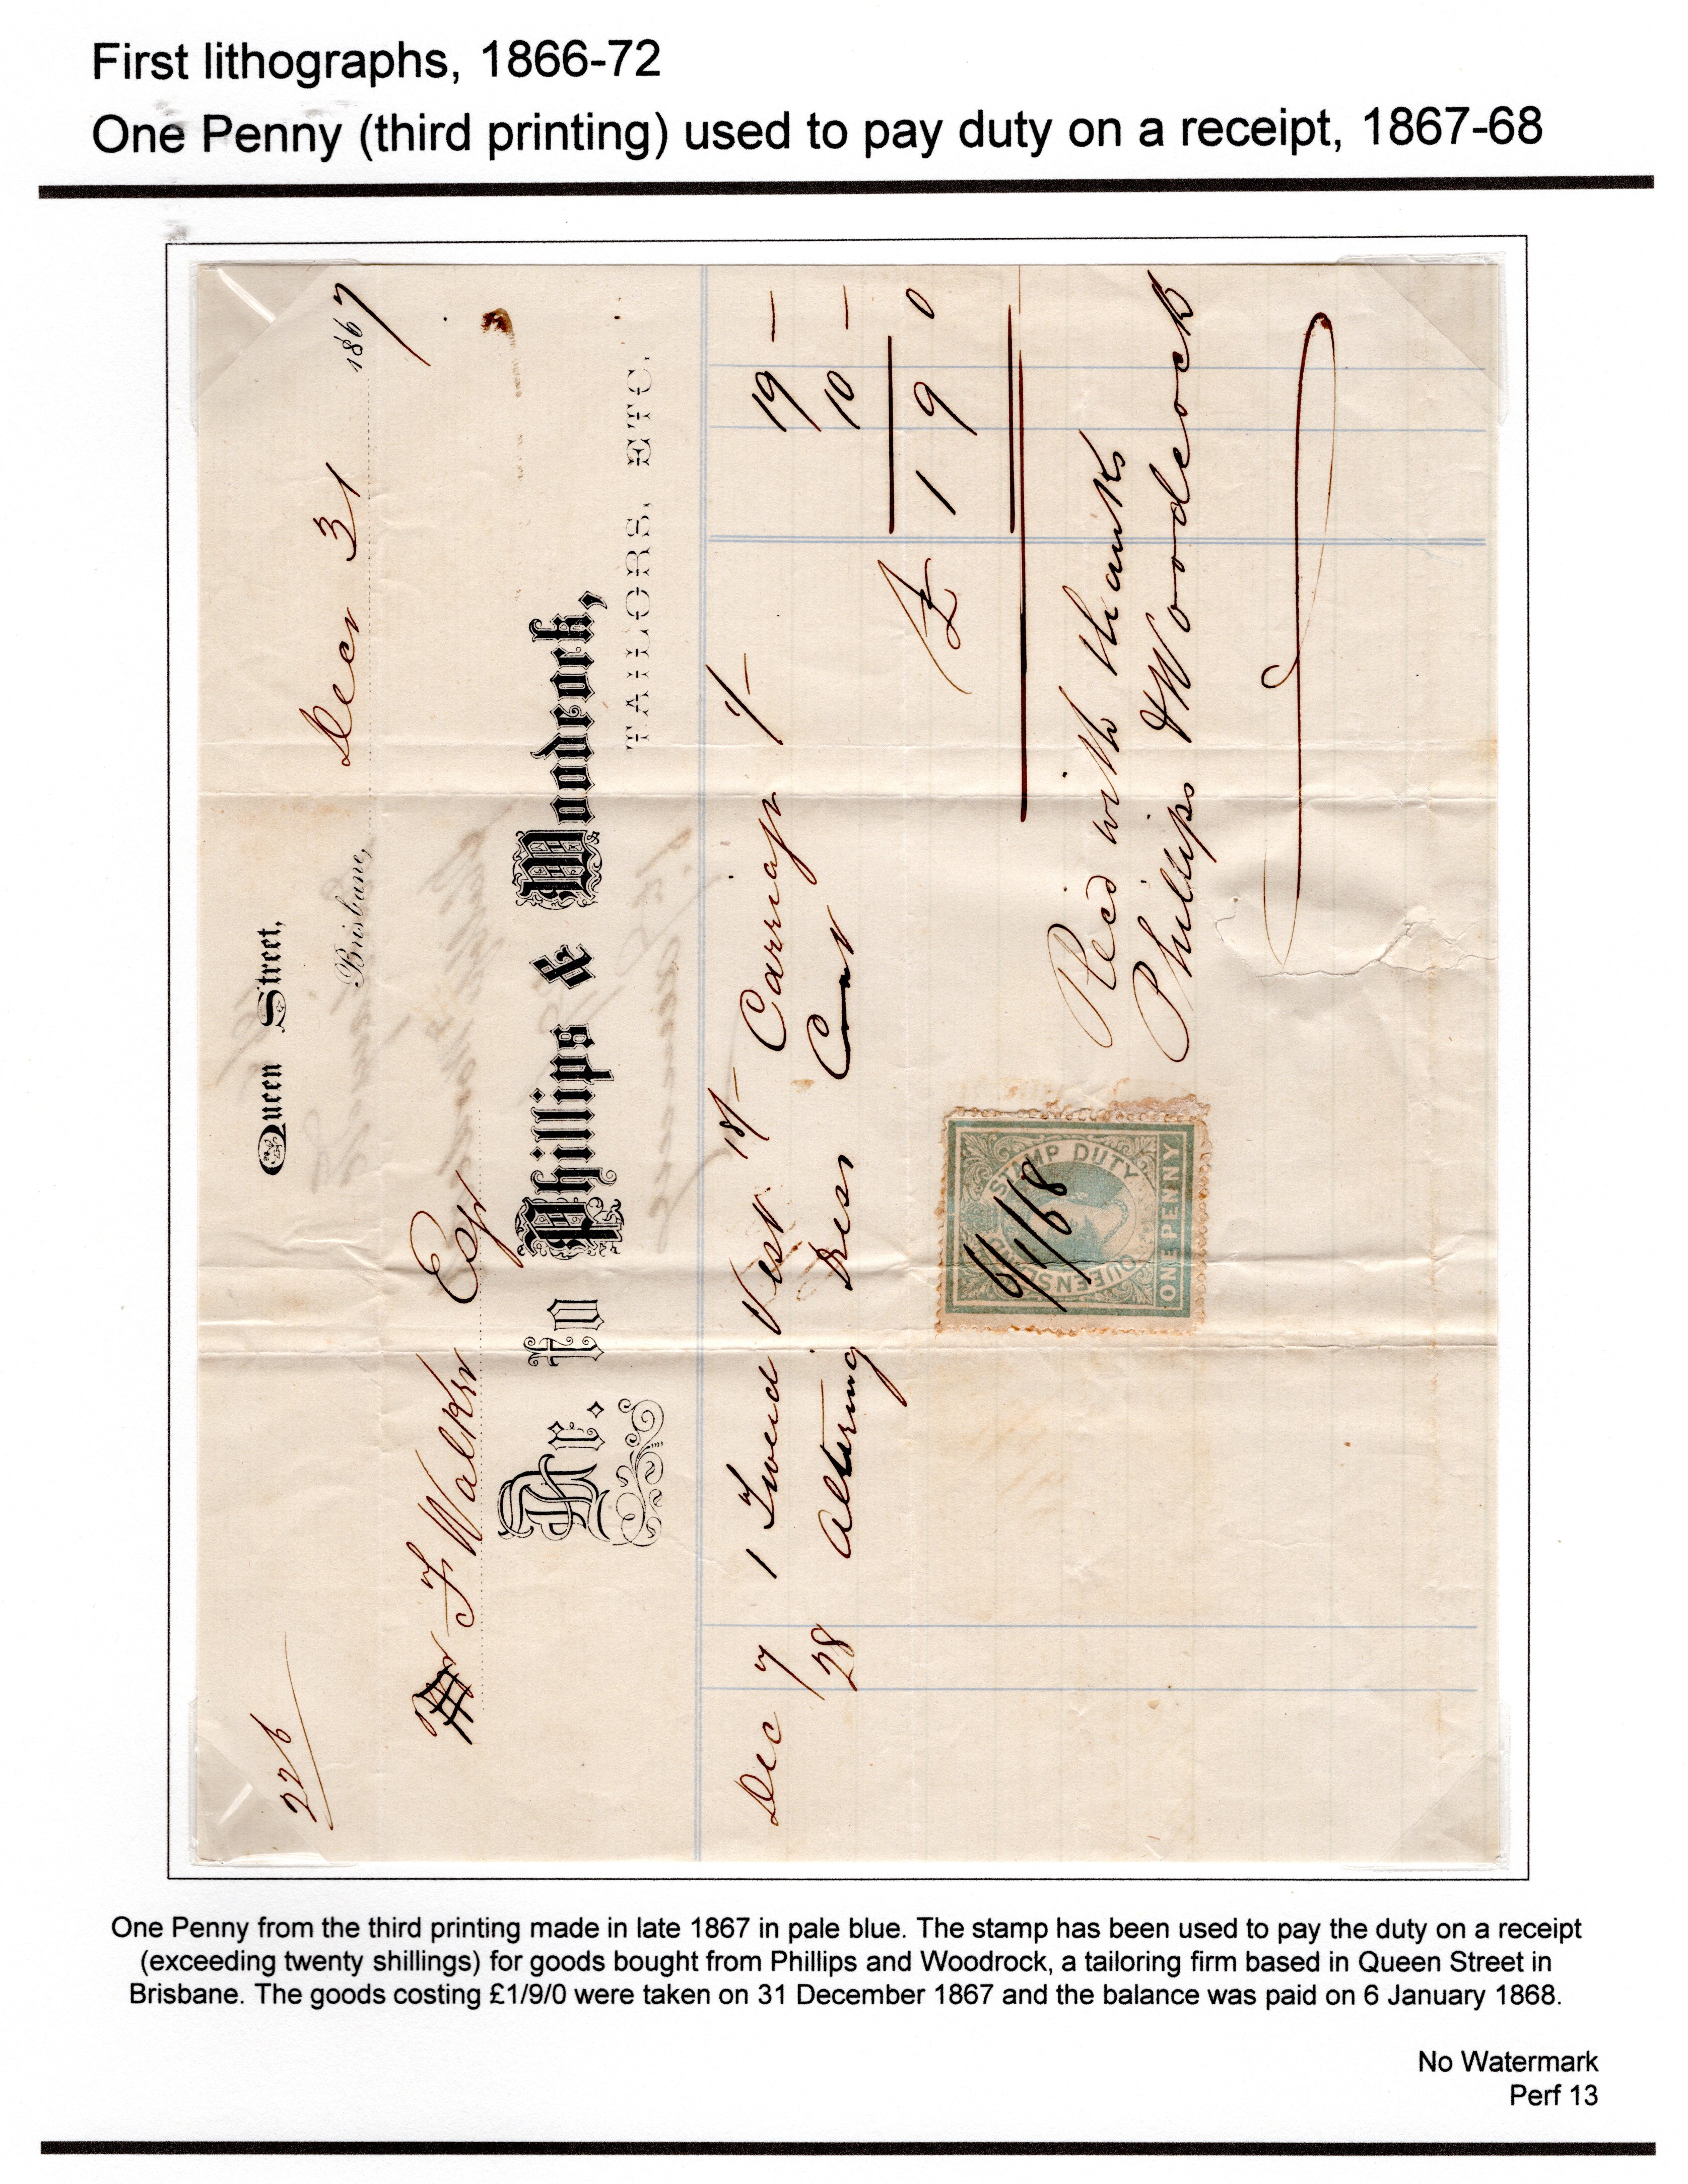 First lithographs, 1866-72
One Penny (third printing) used to pay duty on a receipt, 1867-68
226
Queen Street,
Brisbane, Decr 31 1867
Mr F Walker Esqr
Dr. to Phillips & Woodrock,
TAILORS, ETC.
Dec 7 1 Tweed Vest 18/- Carriage 1/- 19 —
28 Altering Dress Coat 10 —
£ 1 9 0
Recd with thanks
Phillips & Woodcock
STAMP DUTY
QUEENSLAND
6/1/68
ONE PENNY
One Penny from the third printing made in late 1867 in pale blue. The stamp has been used to pay the duty on a receipt
(exceeding twenty shillings) for goods bought from Phillips and Woodrock, a tailoring firm based in Queen Street in
Brisbane. The goods costing £1/9/0 were taken on 31 December 1867 and the balance was paid on 6 January 1868.
No Watermark
Perf 13